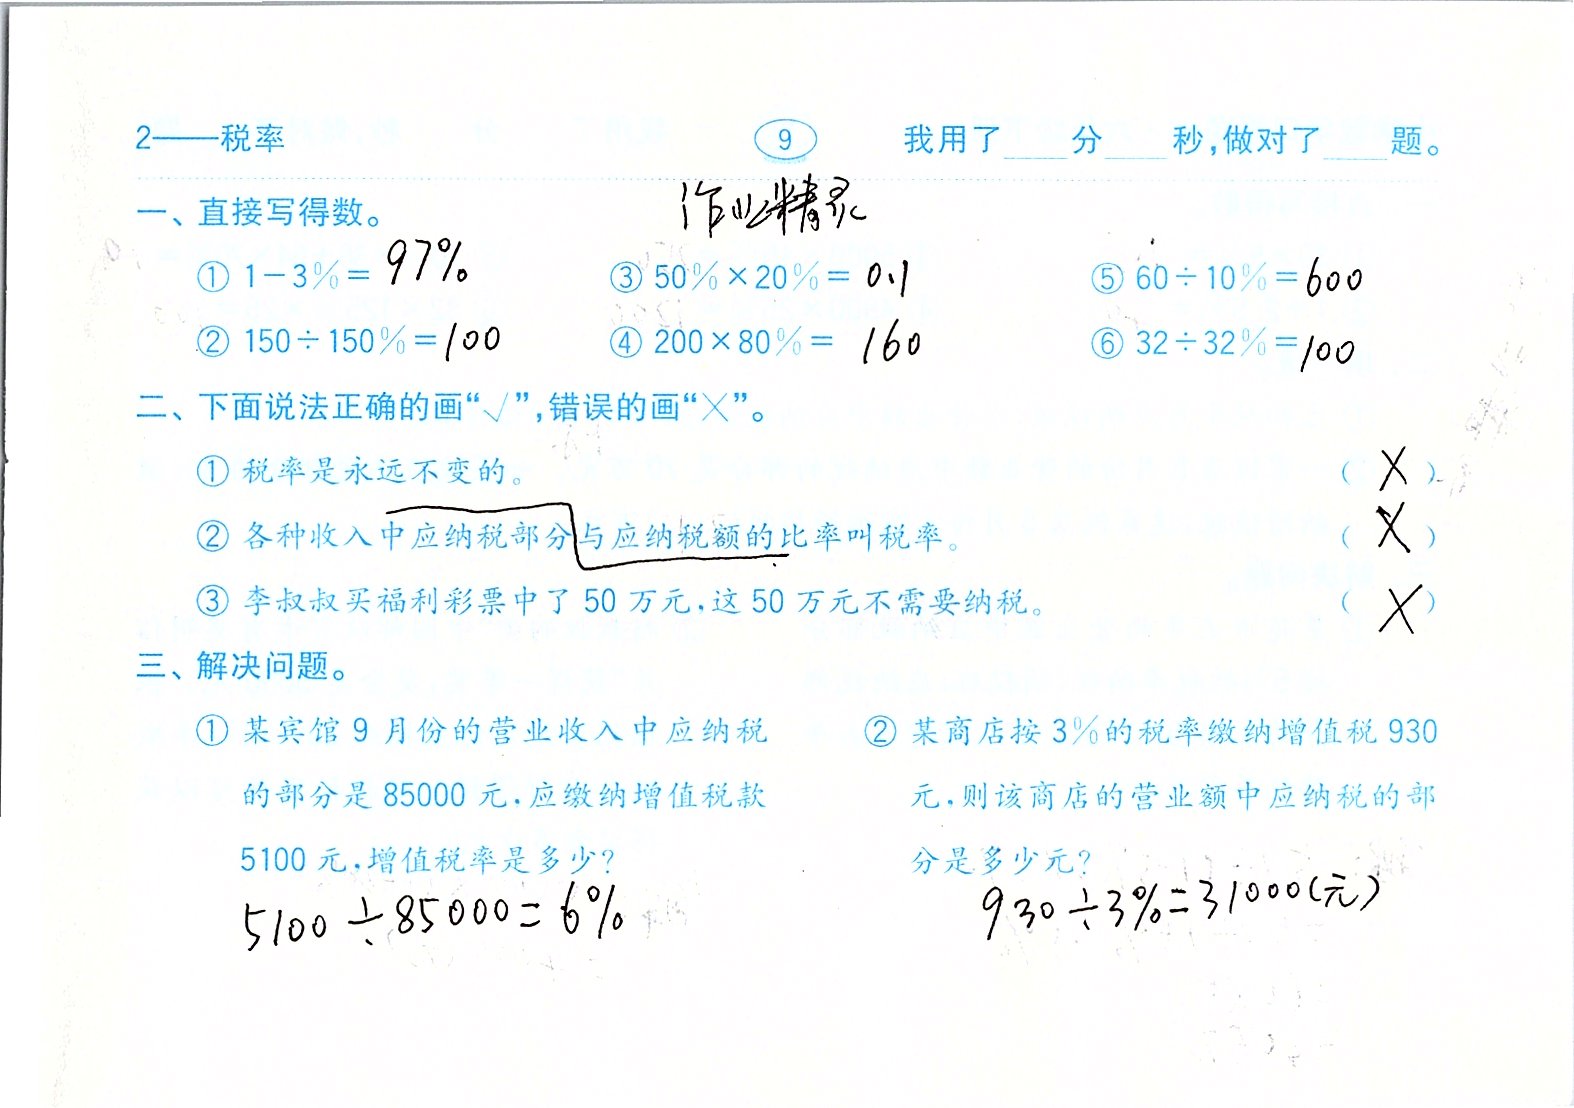 2——税率 9 我用了____分____秒,做对了____题。
作业精灵
一、直接写得数。
① 1-3%= 97% ③ 50%×20%= 0.1 ⑤ 60÷10%=600
② 150÷150%=100 ④ 200×80%= 160 ⑥ 32÷32%=100
二、下面说法正确的画“√”,错误的画“×”。
① 税率是永远不变的。 ( X )
② 各种收入中应纳税部分与应纳税额的比率叫税率。 ( X )
③ 李叔叔买福利彩票中了 50 万元,这 50 万元不需要纳税。 ( X )
三、解决问题。
① 某宾馆 9 月份的营业收入中应纳税
的部分是 85000 元,应缴纳增值税款
5100 元,增值税率是多少?
5100÷85000=6%
② 某商店按 3%的税率缴纳增值税 930
元,则该商店的营业额中应纳税的部
分是多少元?
930÷3%=31000(元)